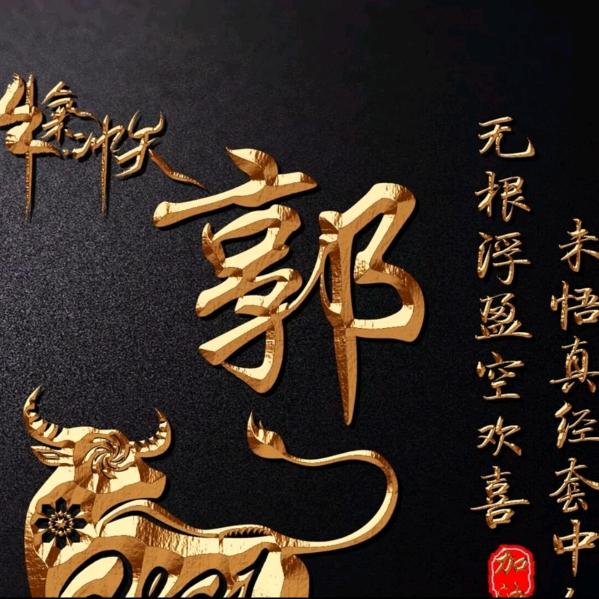 牛气冲天
郭
未悟真经套中
无根浮盈空欢喜
加
2021